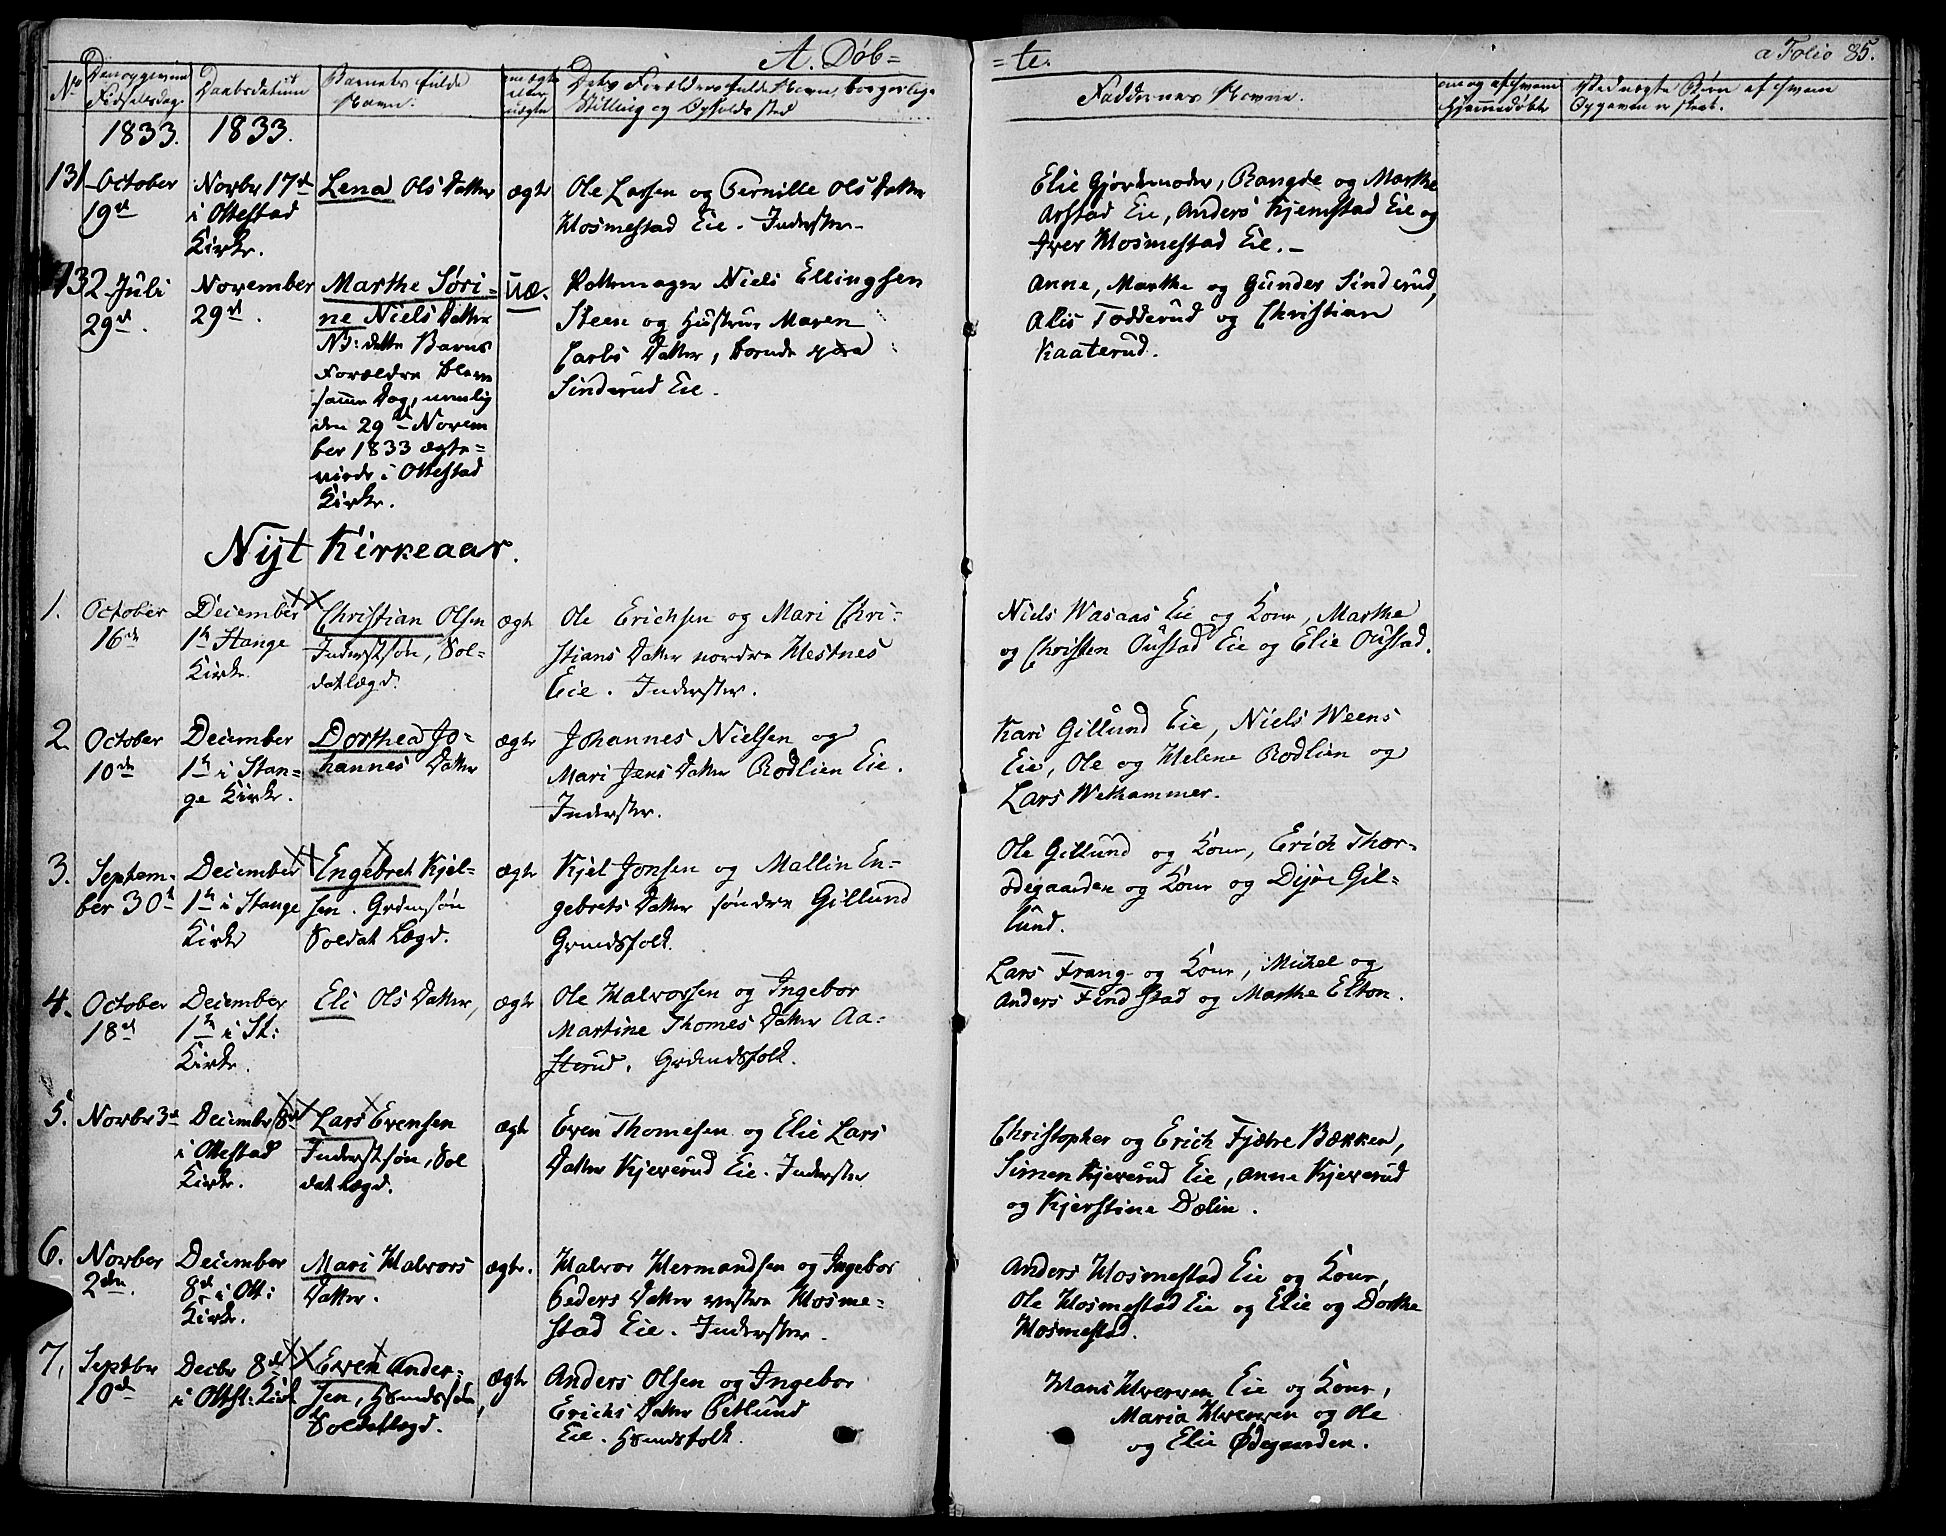 A. Døb=
=te.
a Folio 85.
No
Den opgivne Fødselsdag.
Daabsdatum
Barnets fulde Navn.
om ægte eller uægte
Dets Forældres fulde Navn, borgerlige Stilling og Opholdssted
Faddernes Navne.
om og af hvem hjemmedøbt
Ved uægte Børn af hvem Opgaven er skeet.
1833. 1833.
131 October
19de
Novbr 17de
i Ottestad
Kirke.
Lena Ols Datter
ægte
Ole Larsen og Pernille Ols Datter
Hosmestad Eie. Inderster.
Elie Gjordemoder, Rangde og Marthe
Arstad Eie, Anders Kjemstad Eie og
Iver Hosmestad Eie.
132 Juli
29de.
November
29de.
Marthe Søri-
ne Niels Datter
NB: dette Barns
Forældre bleve
samme Dag, nemlig
den 29de Novem
ber 1833 ægte-
viede i Ottestad
Kirke.
uæ.
Pottemager Niels Ellingsen
Steen og Hustrue Maren
Carls Datter,
Sinderud Eie.
Anne, Marthe og Gunder Sinderud,
Alis Todderud og Christian
Kaaterud.
Nyt Kirkeaar.
1. October
16de
December
1te Stange
Kirke.
Christian Olsen
Inderstsøn, Sol-
datlægd.
ægte
Ole Erichsen og Mari Chri-
stians Datter nordre Hestnes
Eie. Inderster.
Niels Wasaas Eie og Kone, Marthe
og Christen Oustad Eie og Elie Oustad.
2. October
10de
December
1te i Stan-
ge Kirke.
Dorthea Jo-
hannes Datter
ægte
Johannes Nielsen og
Mari Jens Datter Rodlien Eie.
Inderster.
Kari Gillund Eie, Niels Weens
Eie, Ole og Helene Rodlien og
Lars Wethammer.
3. Septem-
ber 30te
December
1te i Stange
Kirke
Engebret Kjel-
sen. Grdmsøn
Soldat Lægd.
ægte
Kjel Jonsen og Mallin En-
gebrets Datter søndre Gillund
Grmdsfolk.
Ole Gillund og Kone, Erich Thor-
ødegaarden og Kone og Dijre Gil-
lund.
4. October
18de
December
1te i St:
Kirke.
Eli Ols Datter,
ægte
Ole Halvorsen og Ingebor
Martine Thomes Datter Aa-
sterud. Grdmdsfolk.
Lars Frang og Kone, Michel og
Anders Findstad og Marthe Elton.
5. Novbr 3de
Decembr 8de
i Ottestad
Kirke.
Lars Evensen
Inderstsøn, Sol
datlægd.
ægte
Even Thomesen og Elie Lars
Datter Kjeverud Eie. Inderster
Christopher og Erich Fjætre Bækken,
Simen Kjeverud Eie, Anne Kjeverud
og Kjerstine Dælin.
6. Novber
2den.
December
8de i Ott:
Kirke.
Mari Halvors
Datter.
ægte.
Halvor Hermandsen og Ingebor
Peders Datter vestre Hosme-
stad Eie. Inderster.
Anders Hosmestad Eie og Kone,
Ole Hosmestad Eie og Elie og Dorthe
Hosmestad.
7. Septbr
10de
Decbr 8de
i Ottest: Kirk
Even Ander-
sen, Hsmdssøn
Soldatlægd.
ægte
Anders Olsen og Ingebor
Erichs Datter Petlund
Eie. Hsmdsfolk.
Hans Hverven Eie og Kone,
Maria Hverven og Ole
og Elie Ødegaarden.